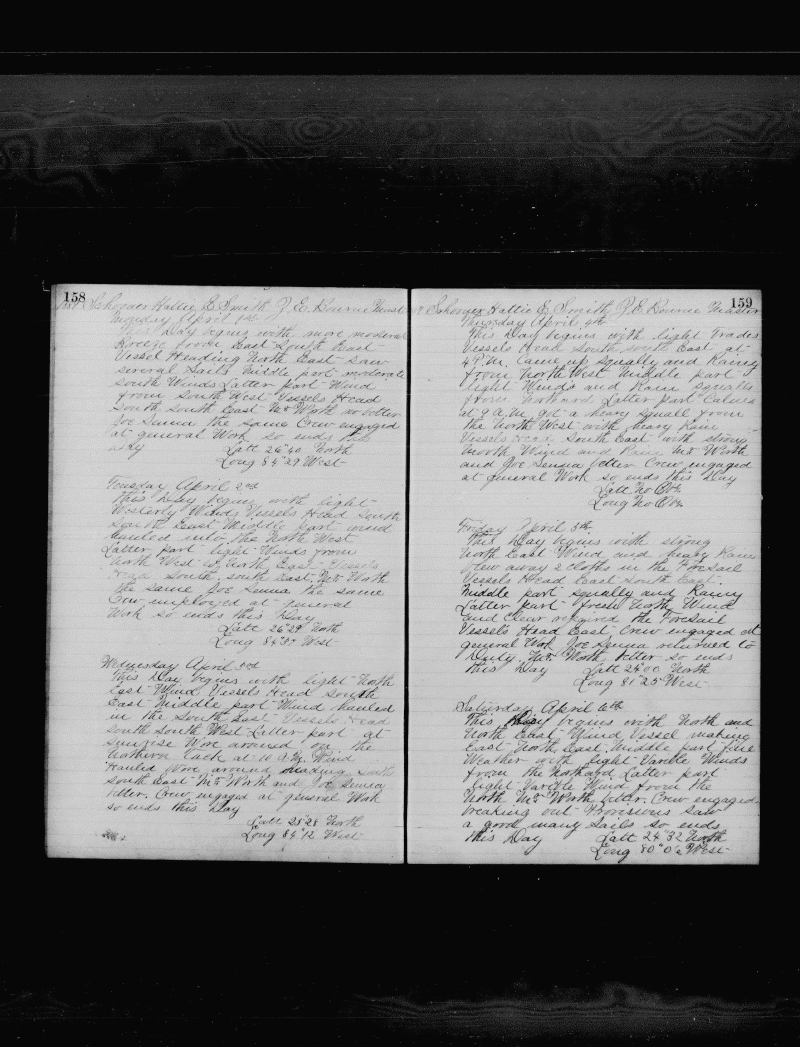 158
Schooner Hattie E Smith J. E. Bourne Mast
Monday April 1st
This Day begins with more moderate
Breeze from East South East
Vessel Heading North East saw
several Sails Middle part moderate
South Winds Latter part Wind
from South West Vessels Head
South South East Mr Worth no better
Joe Senna the same Crew engaged
at general Work so ends this
day Latt 26"40 North
Long 84"29 West
Tuesday April 2nd
This Day begins with light
Westerly Winds Vessels Head South
South East Middle part wind
hauled into the North West
Latter part light Winds from
North West to North East Vessels
Head South South East Mr Worth
the same Joe Senna the same
Crew employed at general
Work so ends this Day
Latt 26"29 North
Long West
Wednesday April 3rd
This Day begins with light North
East Wind Vessels Head South
East Middle part Wind hauled
in the South East Vessels Head
South South West Latter part at
Sunrise Wore around on the
Northern Tack at 10 A.M. Wind
Hauled Wore around heading South
South East Mr Worth and Joe Senna
better. Crew engaged at general Work
so ends this day
Latt 25"28 North
Long 84"12 West
159
Schooner Hattie E Smith J. E. Bourne Master
Thursday April 4th
This Day begins with light Trades
Vessels Head South South East at
4 P.M. Came up squally and Rainy
from North West Middle part
light Winds and Rain squalls
from Northard Latter part Calms
at 9 A.M. got a heavy squall from
the North West with heavy Rain
Vessels Head South East with strong
North Wind and Rain Mr Worth
and Joe Senna better Crew engaged
at general Work so ends this Day
Latt No Obs
Long No Obs
Friday April 5th
This Day begins with strong
North East Wind and heavy Rain
blew away 2 cloths in the Foresail
Vessels Head East South East.
Middle part squally and Rainy
Latter part fresh North Wind
and Clear repaired the Foresail
Vessels Head East Crew engaged at
general Work Joe Senna returned to
Duty Mr Worth better so ends
this Day Latt 24"00 North
Long 81"25 West
Saturday April 6th
This Day begins with North and
North East Wind Vessel making
East North East Middle part fine
Weather with light Varible Winds
from the Northard Latter part
light Varible Wind from the
North Mr Worth better. Crew engaged
breaking out Provisions Saw
a good many Sails so ends
this Day Latt 24"32 North
Long 80"06 West